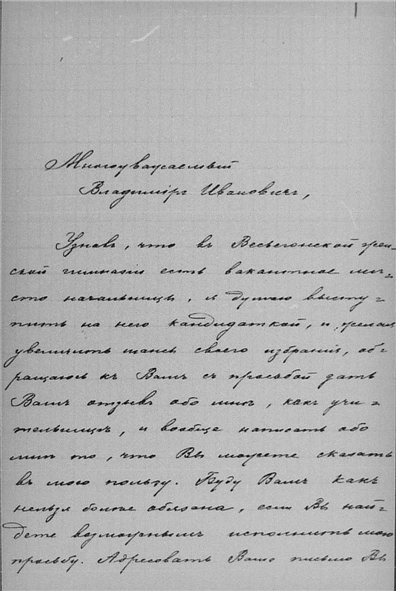 Многоуважаемый
Владиміръ Ивановичъ,
Узнавъ, что въ Весьегонской жен-
ской гимназіи есть вакантное мѣ-
сто начальницы, я думаю высту-
пить на него кандидаткой, и, желая
увеличить шансы своего избранія, об-
ращаюсь къ Вамъ съ просьбой дать
Вашъ отзывъ обо мнѣ, какъ учи-
тельницѣ, и вообще написать обо
мнѣ то, что Вы можете сказать
въ мою пользу. Буду Вамъ какъ
нельзя болѣе обязана, если Вы най-
дете возможнымъ исполнить мою
просьбу. Адресовать Ваше письмо Вы